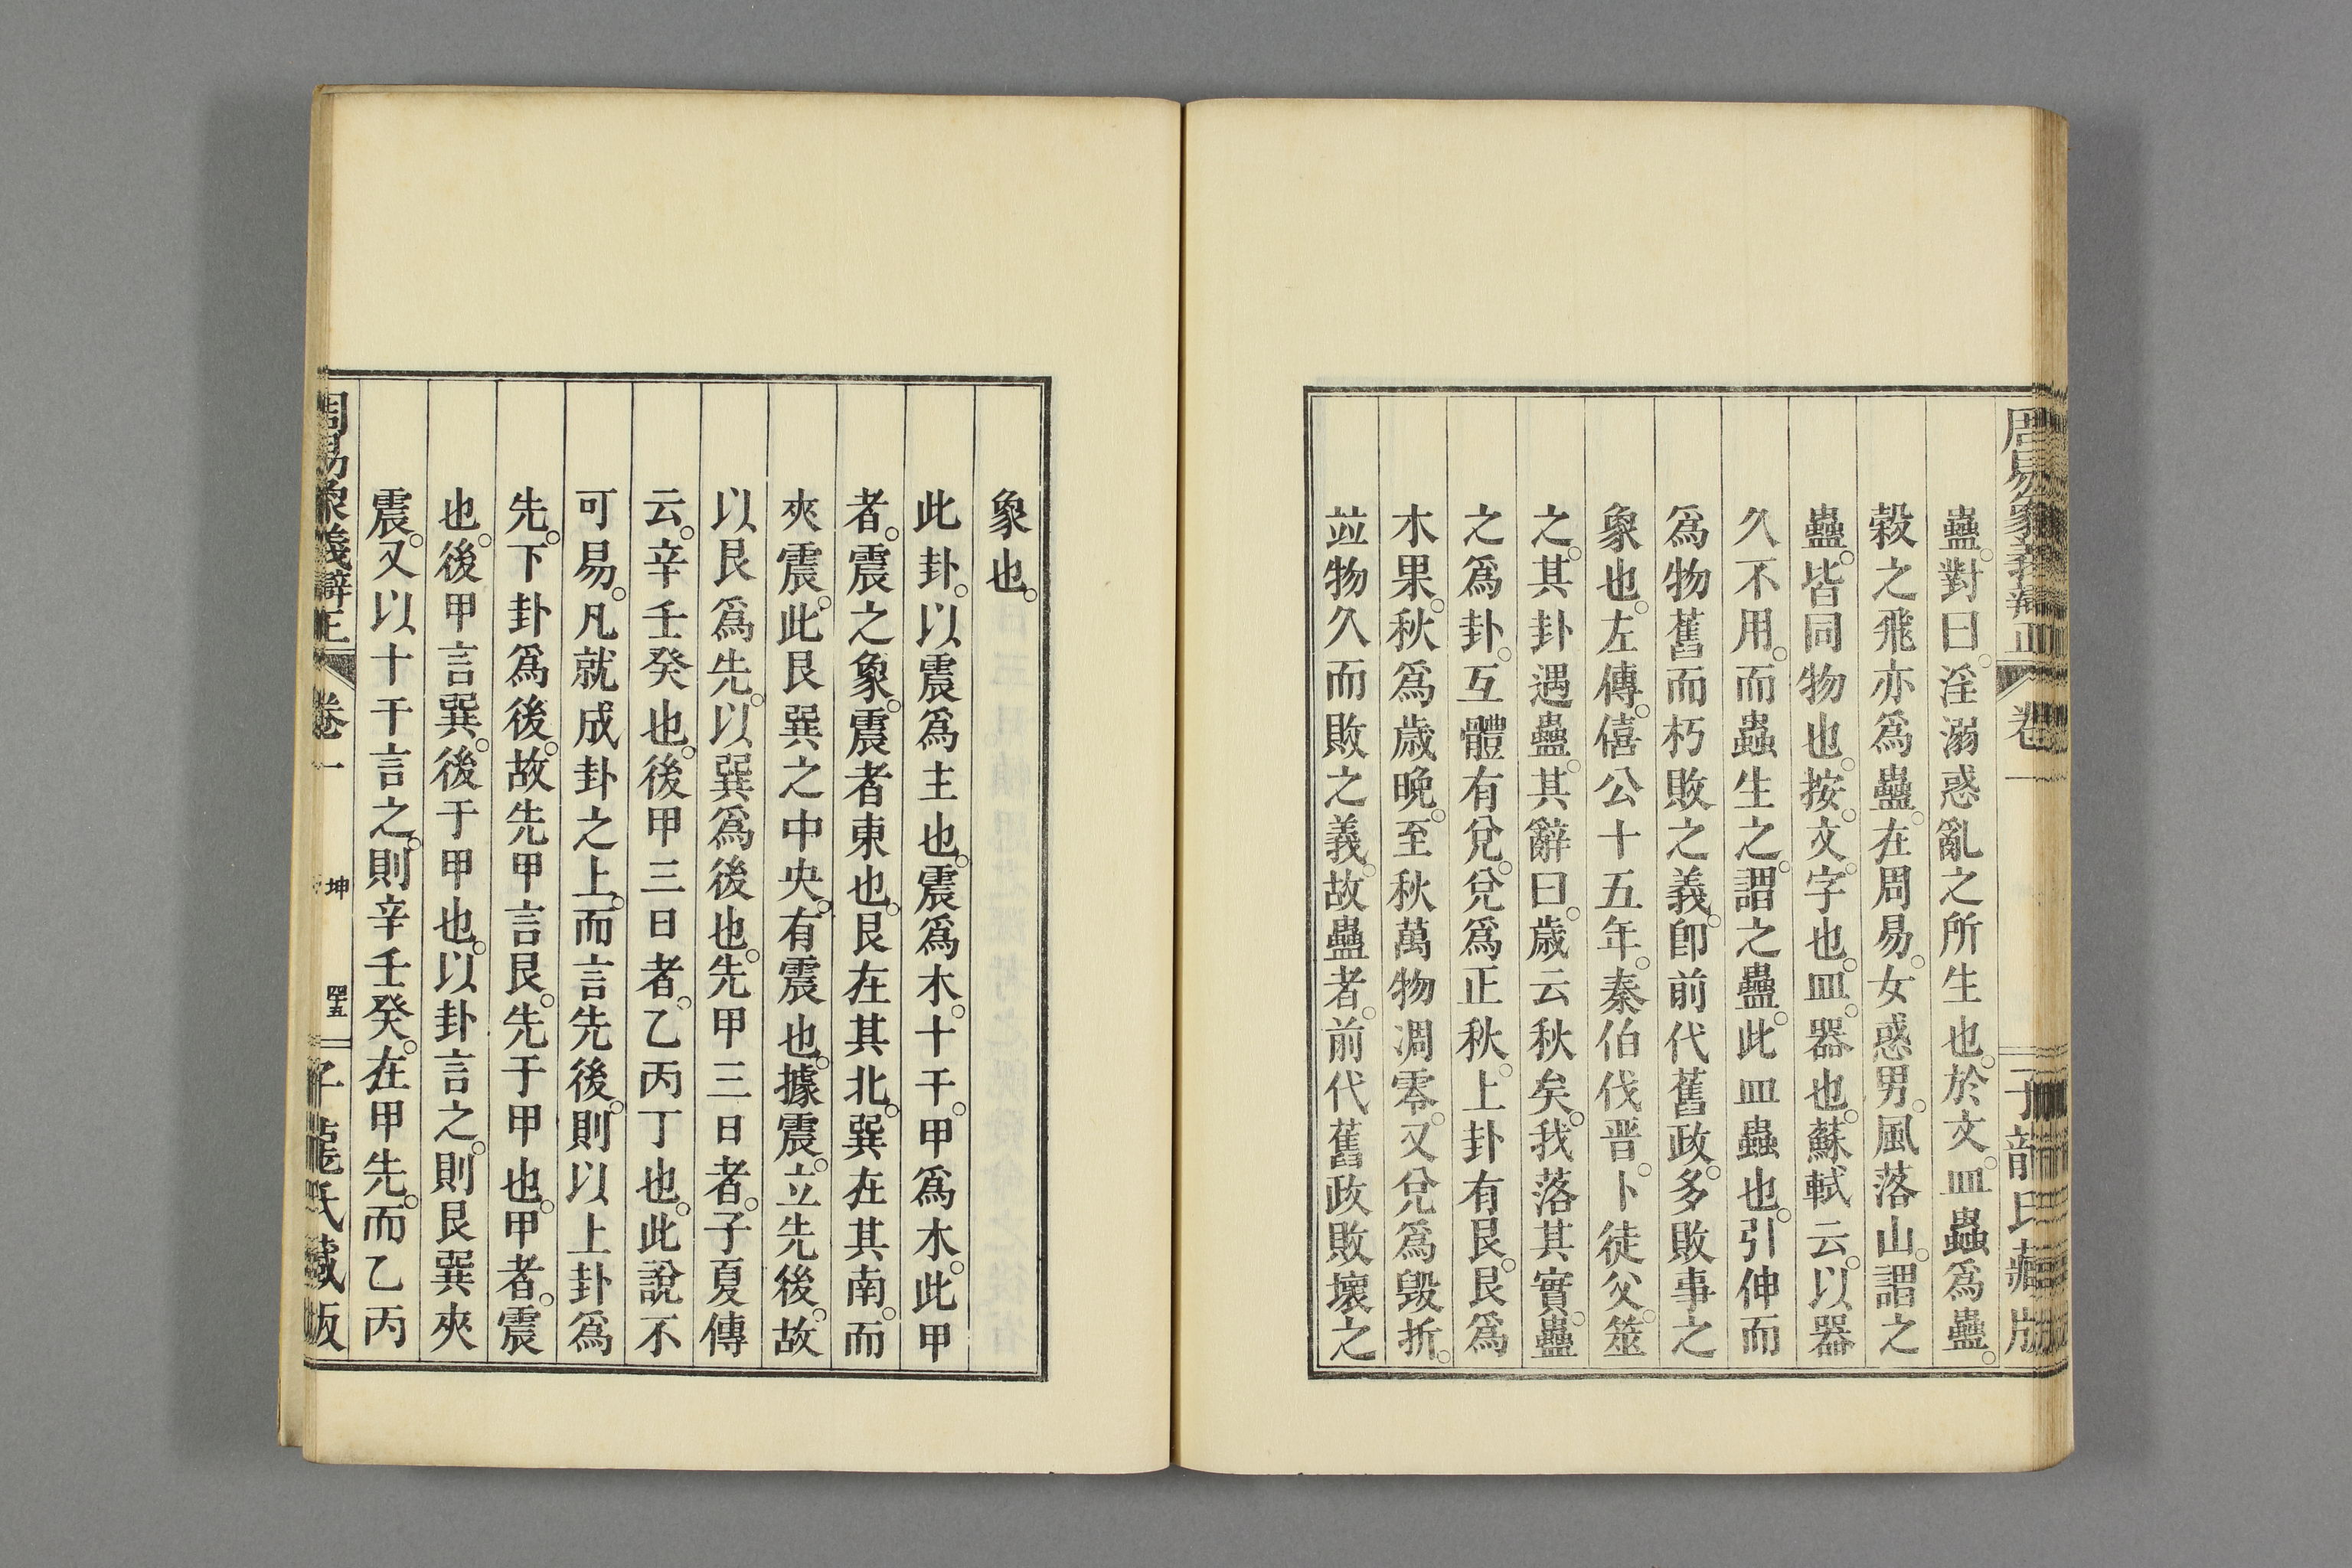 周易象義辯正 卷一 子龍氏藏版
蠱。對曰。淫溺惑亂之所生也。於文。皿蟲爲蠱。
穀之飛亦爲蠱。在周易。女惑男。風落山。謂之
蠱。皆同物也。按。文。字也。皿。器也。蘇軾云。以器
久不用。而蟲生之。謂之蠱。此皿蟲也。引伸而
爲物舊而朽敗之義。卽前代舊政。多敗事之
象也。左傳。僖公十五年。秦伯伐晋。卜徒父。筮
之。其卦遇蠱。其辭曰。歲云秋矣。我落其實。蠱
之爲卦。互體有兌。兌爲正秋。上卦有艮。艮爲
木果。秋爲歲晚。至秋萬物凋零。又兌爲毀折。
竝物久而敗之義。故蠱者。前代舊政敗壞之
象也。
此卦。以震爲主也。震爲木。十干。甲爲木。此甲
者。震之象。震者東也。艮在其北。巽在其南。而
夾震。此艮巽之中央。有震也。據震。立先後。故
以艮爲先。以巽爲後也。先甲三日者。子夏傳
云。辛壬癸也。後甲三日者。乙丙丁也。此說不
可易。凡就成卦之上。而言先後。則以上卦爲
先。下卦爲後。故先甲言艮。先于甲也。甲者。震
也。後甲言巽。後于甲也。以卦言之。則艮巽夾
震。又以十干言之。則辛壬癸。在甲先。而乙丙
周易象義辯正 卷一 坤 四十五 子龍氏藏版